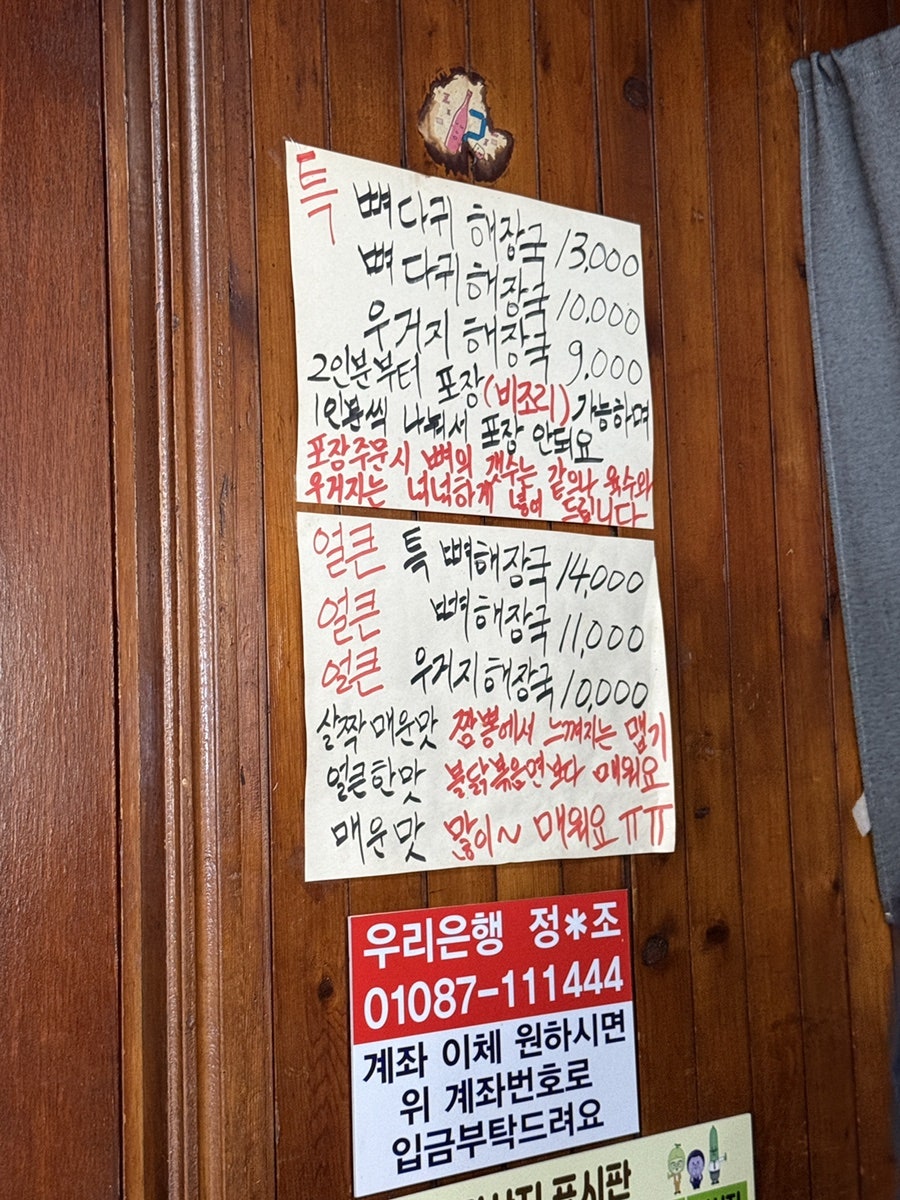 특 뼈다귀 해장국 13,000
뼈다귀 해장국 10,000
우거지 해장국 9,000
2인분부터 포장(비조리)가능하며
1인분씩 나눠서 포장 안되요
포장주문시 뼈의 갯수는 같으나 육수와
우거지는 넉넉하게 넣어 드립니다
얼큰 특 뼈해장국 14,000
얼큰 뼈해장국 11,000
얼큰 우거지해장국 10,000
살짝매운맛 짬뽕에서 느껴지는 맵기
얼큰한맛 불닭볶음면보다 매워요
매운맛 많이~ 매워요 ㅠㅠ
우리은행 정*조
01087-111444
계좌 이체 원하시면
위 계좌번호로
입금부탁드려요
표시판